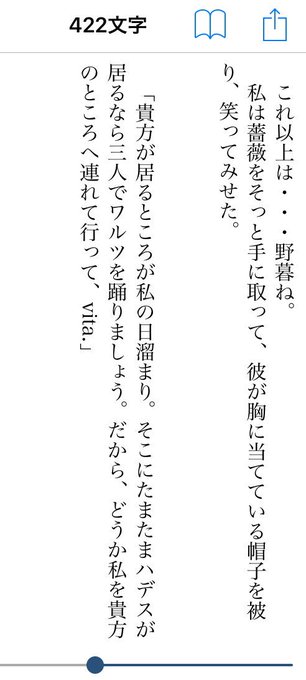 422文字
これ以上は・・・野暮ね。
私は薔薇をそっと手に取って、彼が胸に当てている帽子を被
り、笑ってみせた。
「貴方が居るところが私の日溜まり。そこにたまたまハデスが
居るなら三人でワルツを踊りましょう。だから、どうか私を貴方
のところへ連れて行って、vita.」